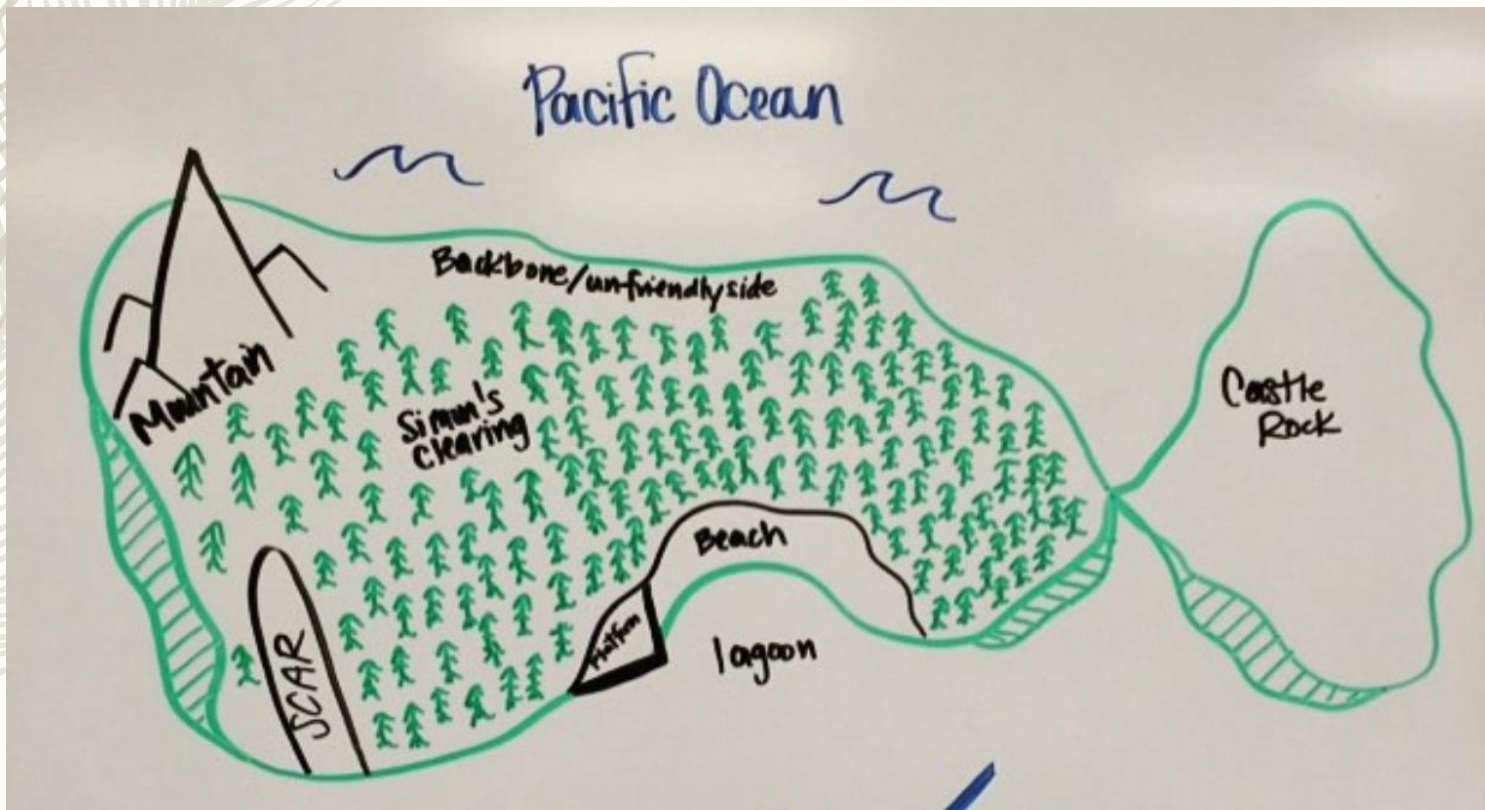 Pacific Ocean
Backbone/unfriendly side
Mountain
Simon's
clearing
Castle
Rock
Beach
Platform
lagoon
SCAR